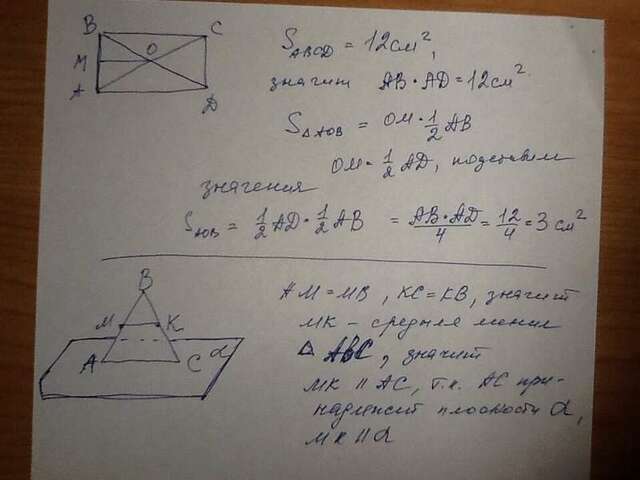 B C
O
M
A D
S_ABCD = 12 см²,
значит AB · AD = 12 см²
S_△AOB = OM · 1/2 AB
OM = 1/2 AD, подставим
значения
S_AOB = 1/2 AD · 1/2 AB = AB · AD/4 = 12/4 = 3 см²
B
M K
A C α
AM = MB, KC = KB, значит
MK – средняя линия
△ ABC, значит
MK || AC, т.к. AC при-
надлежит плоскости α,
MK || α